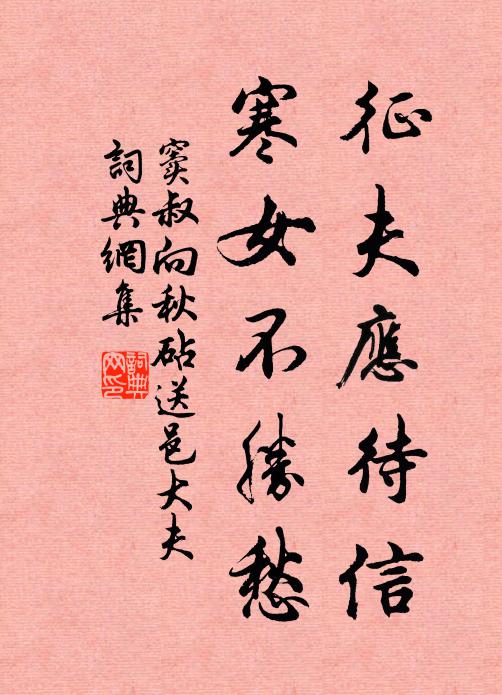 征夫應待信
寒女不勝愁
竇叔向秋砧送邑大夫
詞典網集
詞典網印